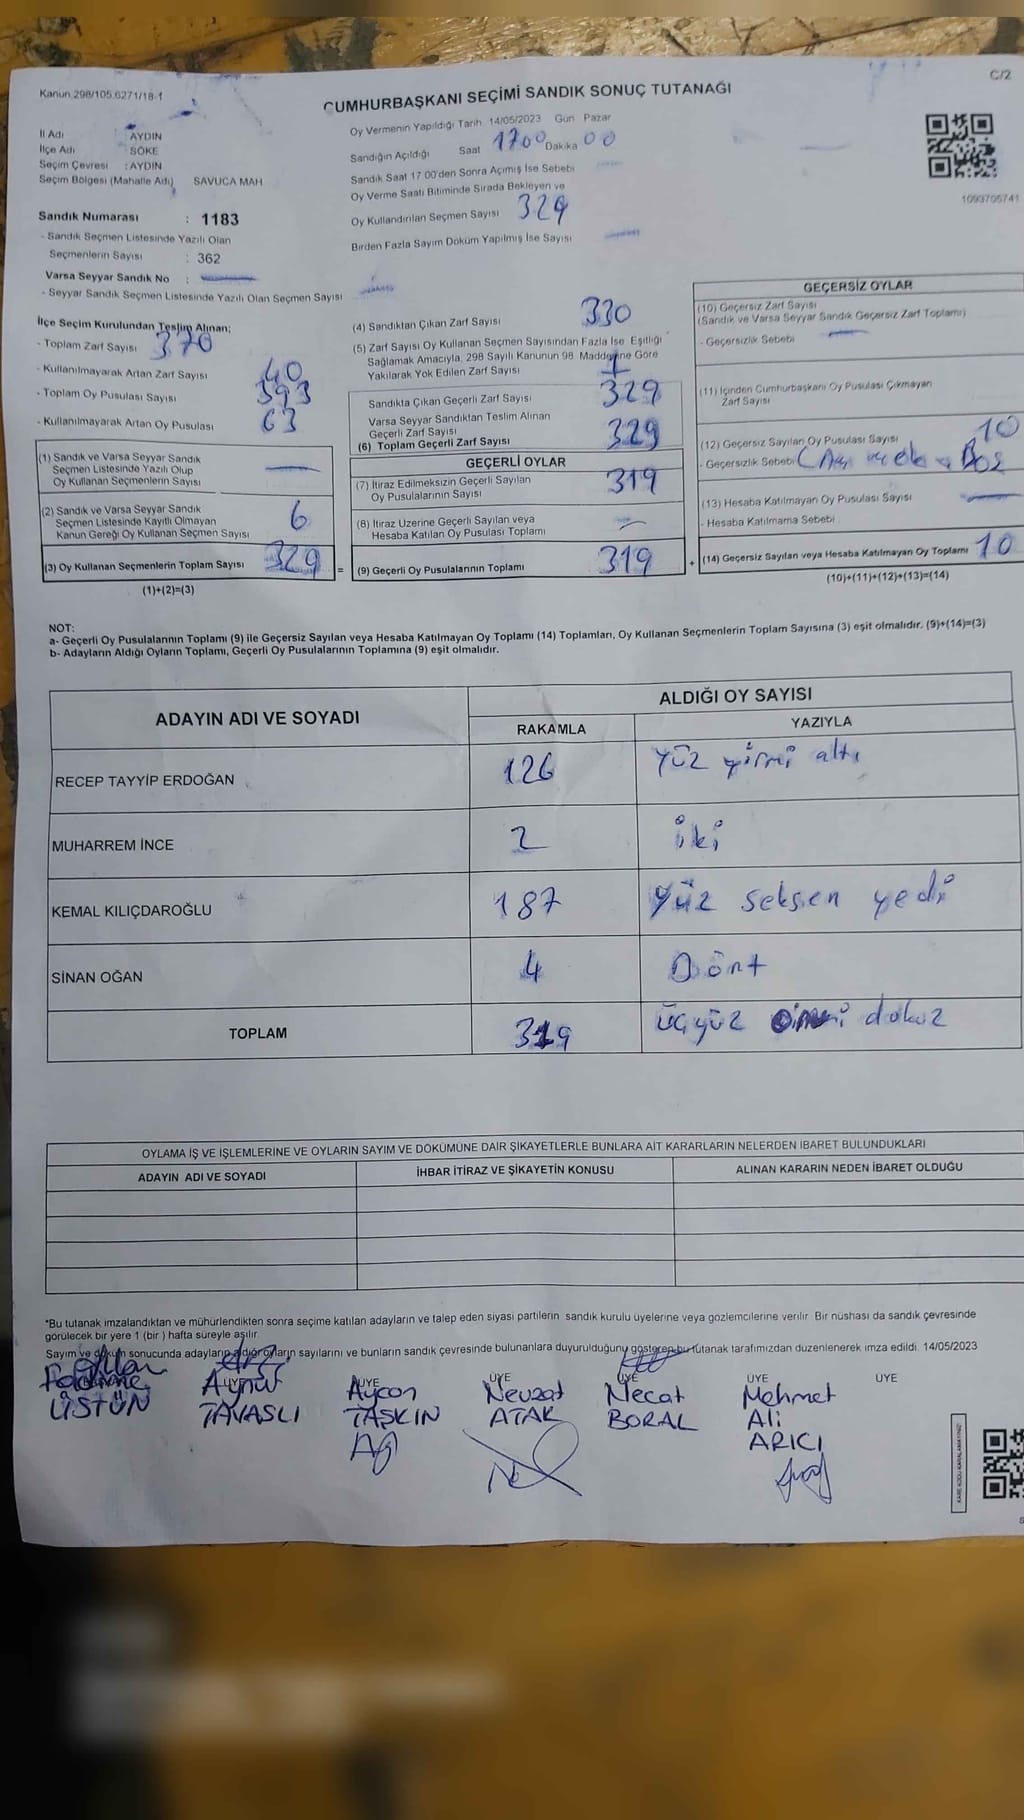 Kanun 298/105.6271/18-1
C/2
CUMHURBAŞKANI SEÇİMİ SANDIK SONUÇ TUTANAĞI
İl Adı : AYDIN
İlçe Adı : SÖKE
Seçim Çevresi : AYDIN
Seçim Bölgesi (Mahalle Adı) SAVUCA MAH
Sandık Numarası : 1183
- Sandık Seçmen Listesinde Yazılı Olan
Seçmenlerin Sayısı : 362
Varsa Seyyar Sandık No :
- Seyyar Sandık Seçmen Listesinde Yazılı Olan Seçmen Sayısı
Oy Vermenin Yapıldığı Tarih 14/05/2023 Gün Pazar
Sandığın Açıldığı Saat 1700 Dakika 00
Sandık Saat 17 00'den Sonra Açımış İse Sebebi
Oy Verme Saati Bitiminde Sırada Bekleyen ve
Oy Kullandırılan Seçmen Sayısı 329
Birden Fazla Sayım Döküm Yapılmış İse Sayısı
1093705741
İlçe Seçim Kurulundan Teslim Alınan;
- Toplam Zarf Sayısı 370
- Kullanılmayarak Artan Zarf Sayısı 40
- Toplam Oy Pusulası Sayısı 393
- Kullanılmayarak Artan Oy Pusulası 63
(1) Sandık ve Varsa Seyyar Sandık
Seçmen Listesinde Yazılı Olup
Oy Kullanan Seçmenlerin Sayısı
(2) Sandık ve Varsa Seyyar Sandık
Seçmen Listesinde Kayıtlı Olmayan
Kanun Gereği Oy Kullanan Seçmen Sayısı 6
(3) Oy Kullanan Seçmenlerin Toplam Sayısı 329 =
(1)+(2)=(3)
(4) Sandıktan Çıkan Zarf Sayısı 330
(5) Zarf Sayısı Oy Kullanan Seçmen Sayısından Fazla İse Eşitliği
Sağlamak Amacıyla, 298 Sayılı Kanunun 98 Maddesine Göre
Yakılarak Yok Edilen Zarf Sayısı 1
Sandıkta Çıkan Geçerli Zarf Sayısı 329
Varsa Seyyar Sandıktan Teslim Alınan
Geçerli Zarf Sayısı
(6) Toplam Geçerli Zarf Sayısı 329
GEÇERLİ OYLAR
(7) İtiraz Edilmeksizin Geçerli Sayılan
Oy Pusulalarının Sayısı 319
(8) İtiraz Üzerine Geçerli Sayılan veya
Hesaba Katılan Oy Pusulası Toplamı
(9) Geçerli Oy Pusulalarının Toplamı 319 +
GEÇERSİZ OYLAR
(10) Geçersiz Zarf Sayısı
(Sandık ve Varsa Seyyar Sandık Geçersiz Zarf Toplamı)
- Geçersizlik Sebebi
(11) İçinden Cumhurbaşkanı Oy Pusulası Çıkmayan
Zarf Sayısı
(12) Geçersiz Sayılan Oy Pusulası Sayısı 10
- Geçersizlik Sebebi
(13) Hesaba Katılmayan Oy Pusulası Sayısı
- Hesaba Katılmama Sebebi
(14) Geçersiz Sayılan veya Hesaba Katılmayan Oy Toplamı 10
(10)+(11)+(12)+(13)=(14)
NOT:
a- Geçerli Oy Pusulalarının Toplamı (9) ile Geçersiz Sayılan veya Hesaba Katılmayan Oy Toplamı (14) Toplamları, Oy Kullanan Seçmenlerin Toplam Sayısına (3) eşit olmalıdır. (9)+(14)=(3)
b- Adayların Aldığı Oyların Toplamı, Geçerli Oy Pusulalarının Toplamına (9) eşit olmalıdır.
ADAYIN ADI VE SOYADI
ALDIĞI OY SAYISI
RAKAMLA YAZIYLA
RECEP TAYYİP ERDOĞAN 126 yüz yirmi altı
MUHARREM İNCE 2 iki
KEMAL KILIÇDAROĞLU 187 yüz seksen yedi
SİNAN OĞAN 4 Dört
TOPLAM 319 üçyüz dokuz
OYLAMA İŞ VE İŞLEMLERİNE VE OYLARIN SAYIM VE DÖKÜMÜNE DAİR ŞİKAYETLERLE BUNLARA AİT KARARLARIN NELERDEN İBARET BULUNDUKLARI
ADAYIN ADI VE SOYADI İHBAR İTİRAZ VE ŞİKAYETİN KONUSU ALINAN KARARIN NEDEN İBARET OLDUĞU
*Bu tutanak imzalandıktan ve mühürlendikten sonra seçime katılan adayların ve talep eden siyasi partilerin sandık kurulu üyelerine veya gözlemcilerine verilir. Bir nüshası da sandık çevresinde
görülecek bir yere 1 (bir ) hafta süreyle asılır.
Sayım ve döküm sonucunda adayların aldığı oyların sayılarını ve bunların sandık çevresinde bulunanlara duyurulduğunu gösteren bu tutanak tarafımızdan düzenlenerek imza edildi. 14/05/2023
ÜYE ÜYE ÜYE ÜYE ÜYE
Fadime Aynur Aycan Nevzat Necat Mehmet
ÜSTÜN TAVASLI TAŞKIN ATAK BORAL Ali
ARICI
KARE KODU KARALAMAYINIZ!